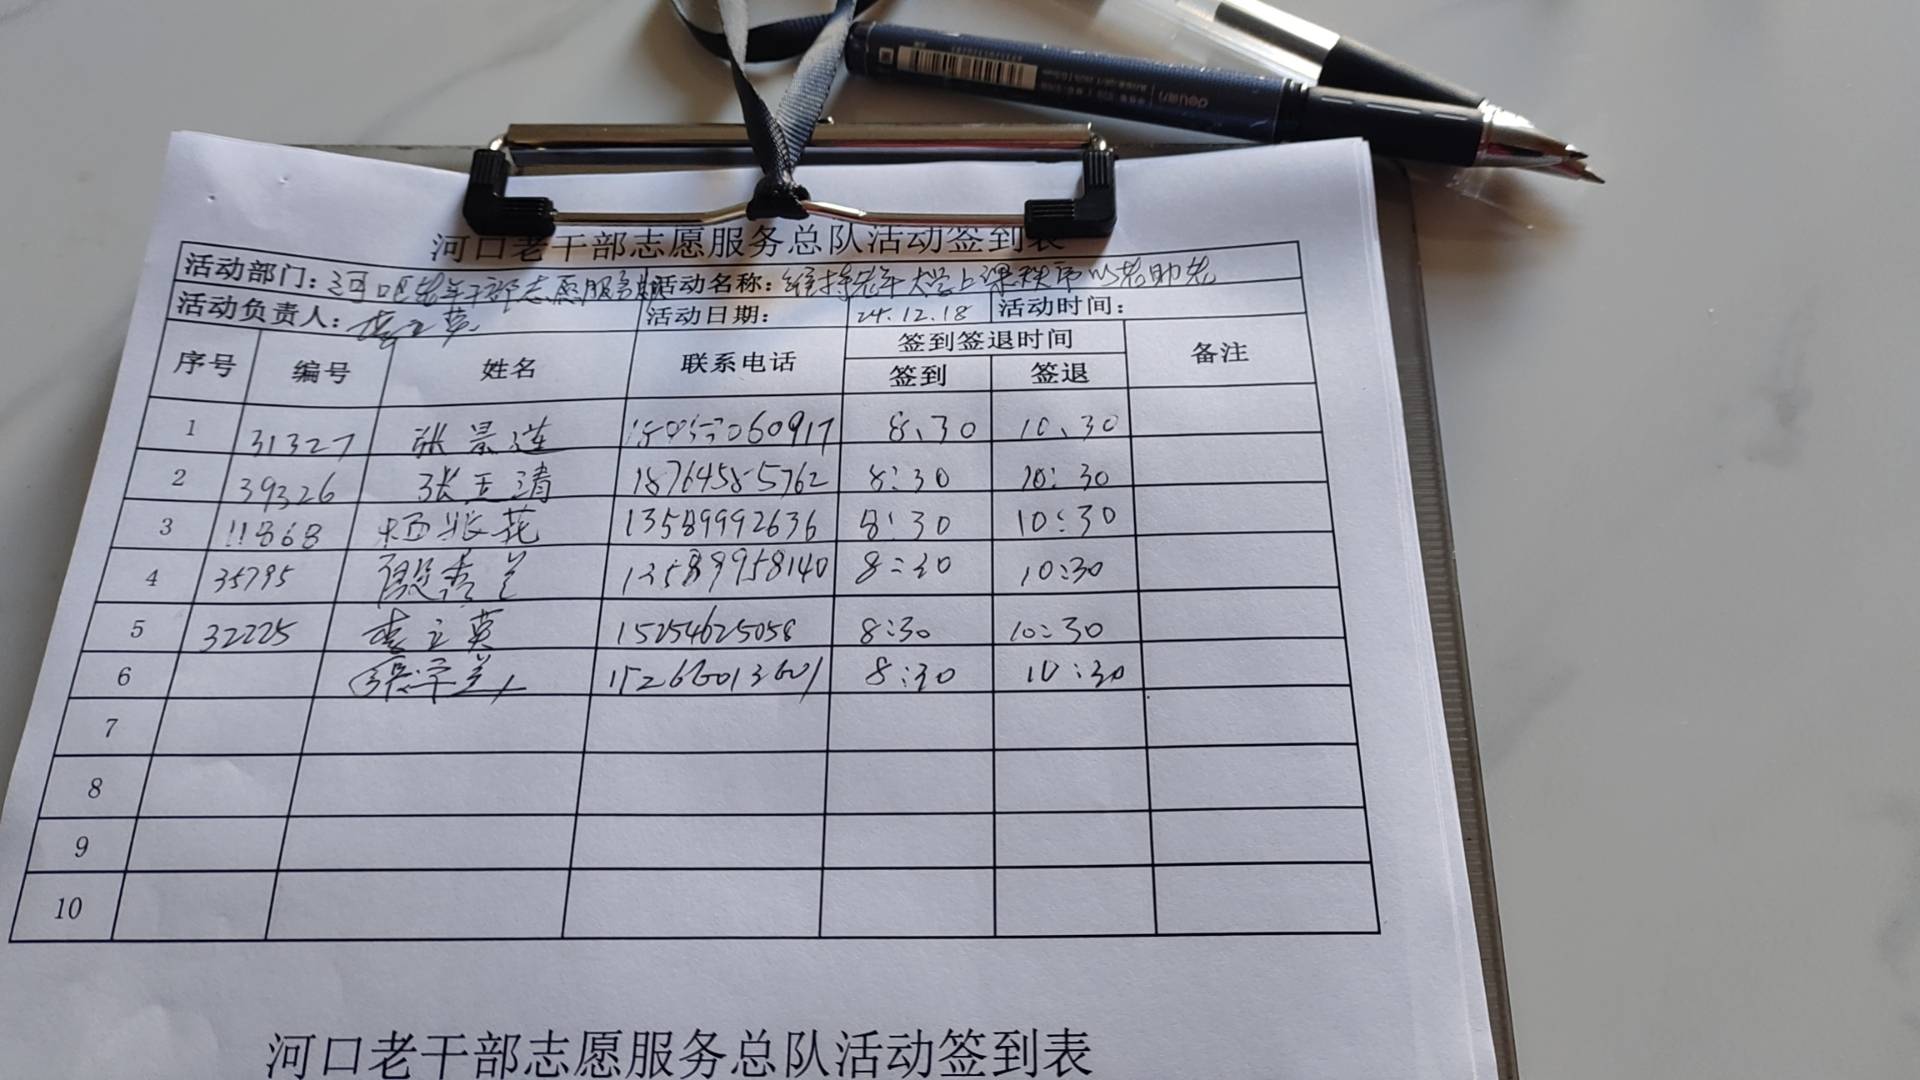 河口老干部志愿服务总队活动签到表
活动部门：河口区老年干部志愿服务 活动名称：维持老年大学上课秩序以老助老
活动负责人：李立英 活动日期： 24.12.18 活动时间：
序号 编号 姓名 联系电话 签到签退时间 备注
签到 签退
1 31327 张景莲 8、30 10、30
2 39326 张玉清 18764585762 8:30 10:30
3 11868 花 13589992636 8:30 10:30
4 35795 殷秀兰 13589958140 8:30 10:30
5 32225 李立英 15254625058 8:30 10:30
6 兰 15266013601 8:30 10:30
7
8
9
10
河口老干部志愿服务总队活动签到表
deli